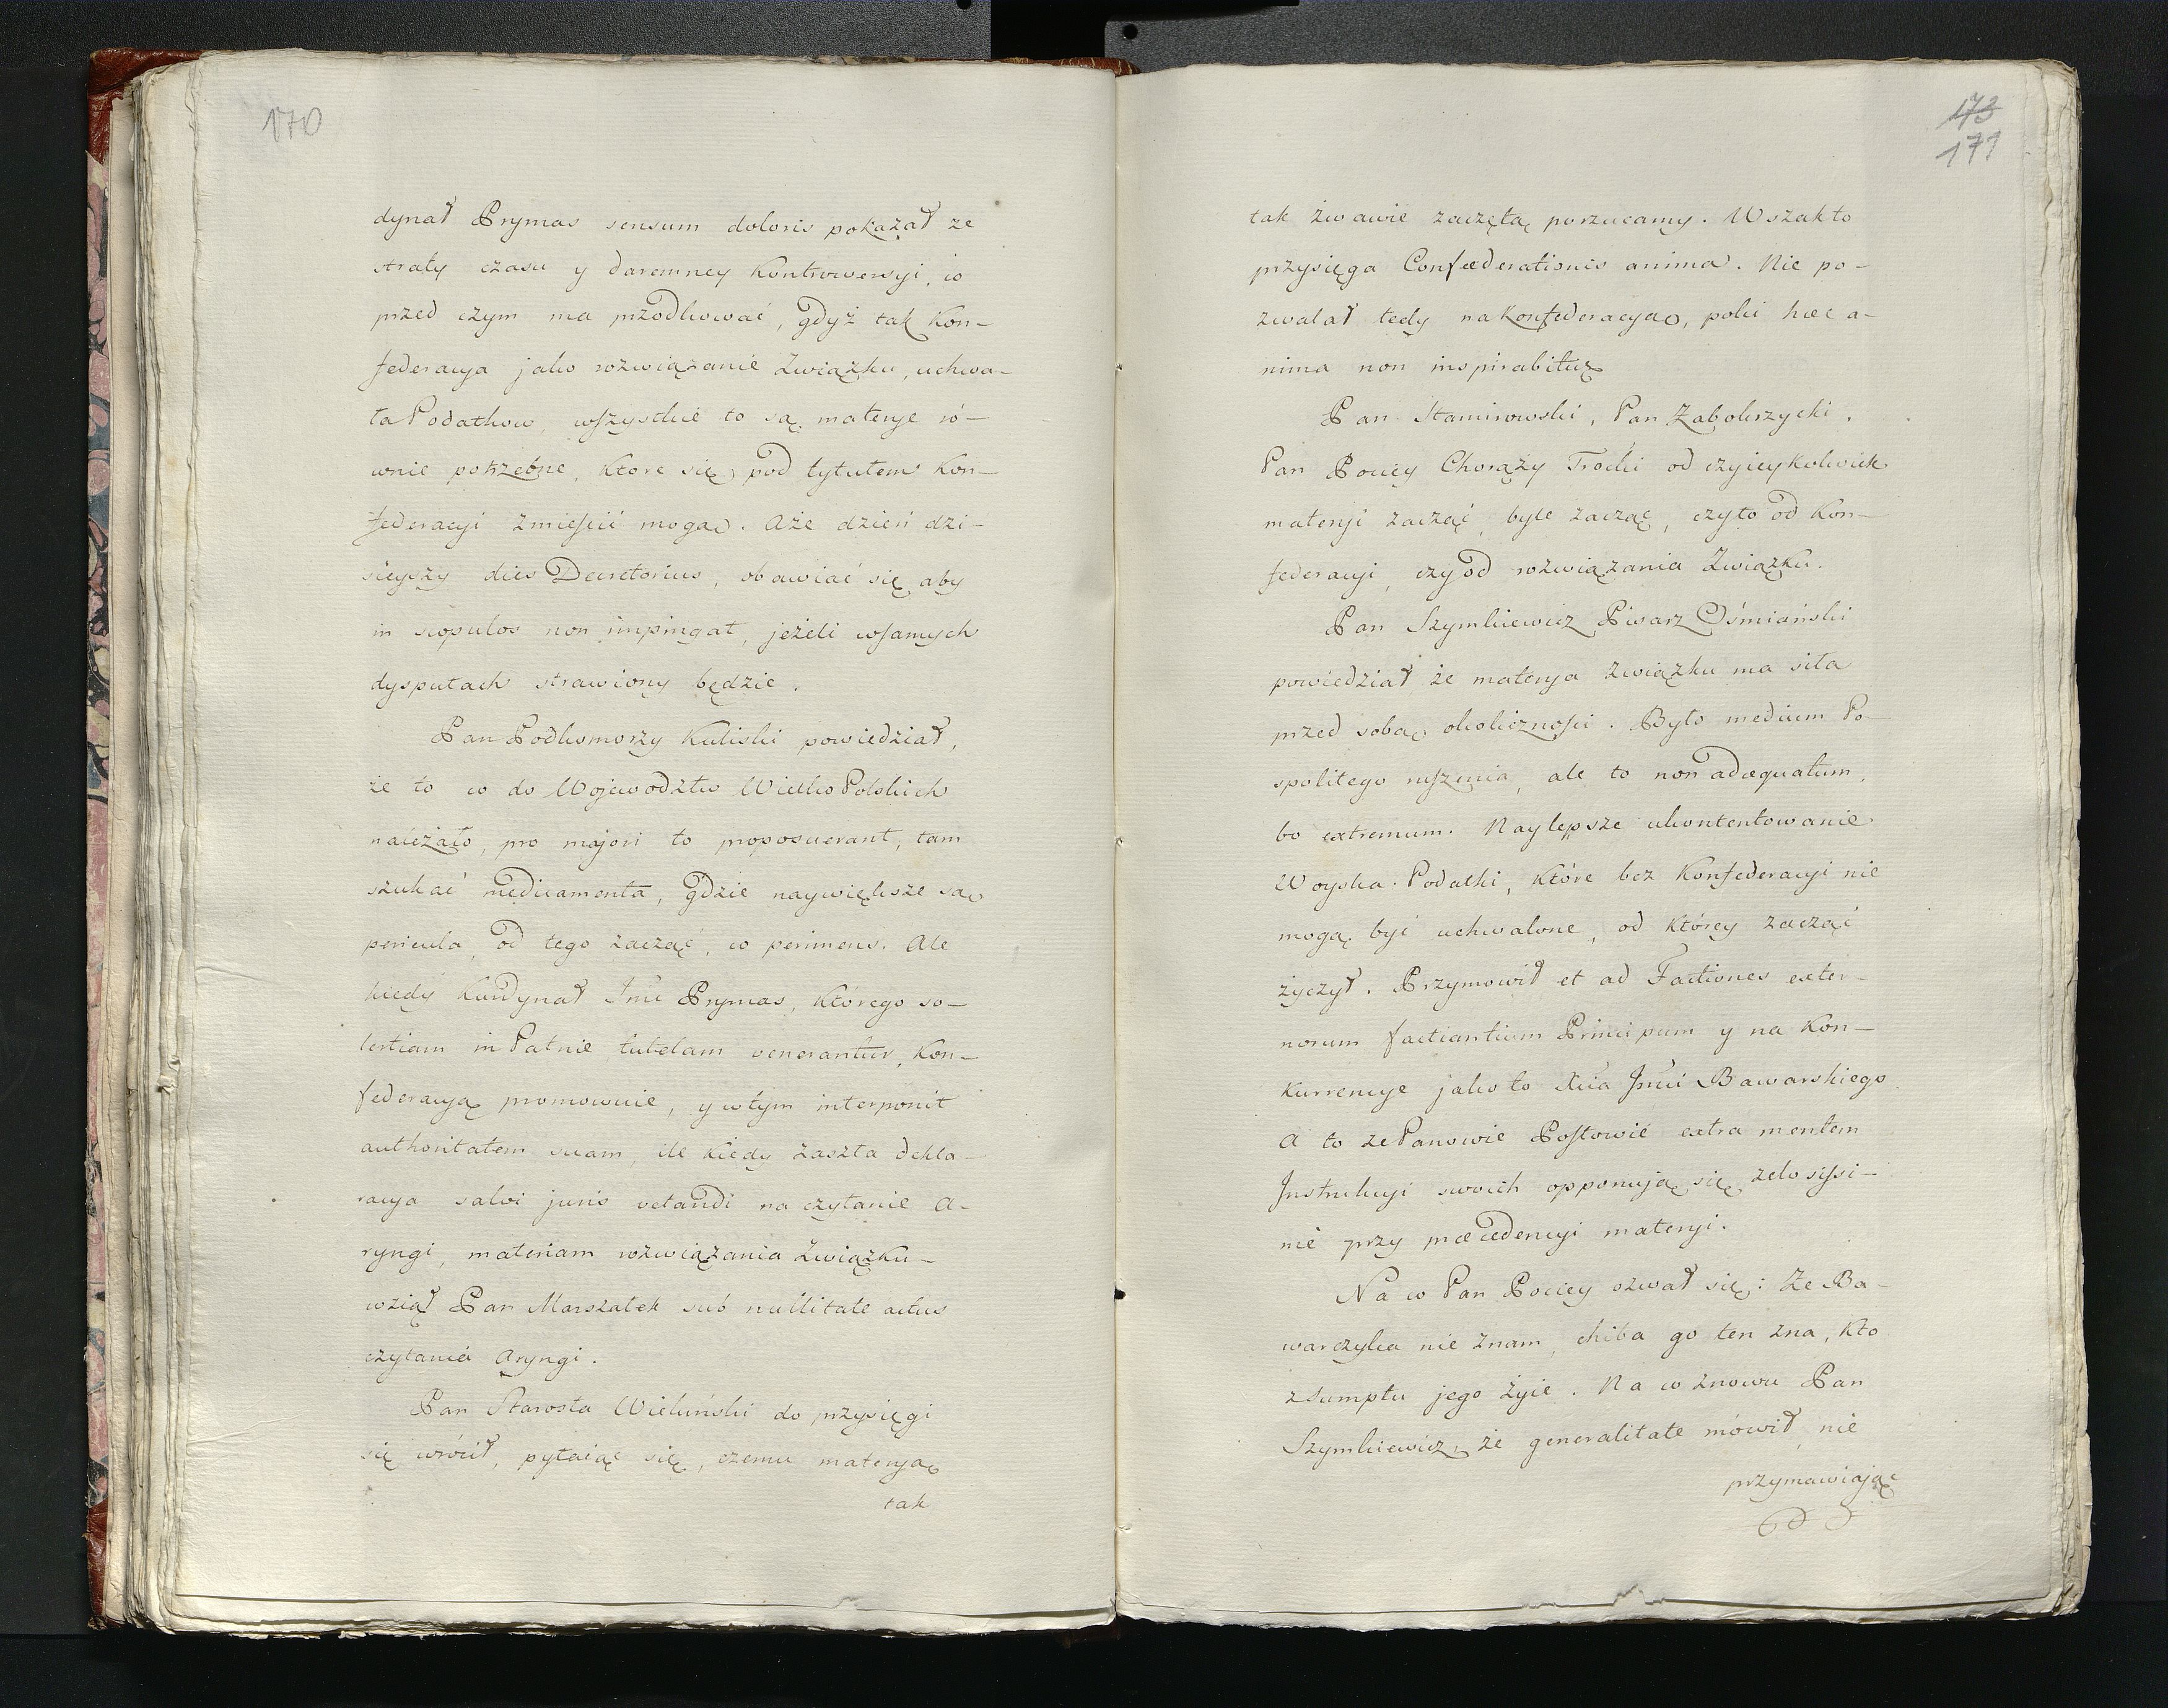 170
dynał Prymas sensum doloris pokazał ze
straty czasu y daremney Kontrowersyi, co
przed czym ma przodkować, gdyż tak Kon-
federacya jako rozwiązanie Związku, uchwa-
ła Podatkow, wszystkie to są materye ró-
wnie potrzebne, Ktore się pod tytułem Kon-
federacyi zmieścić mogą. Aże dzień dzi-
sieyszy dies Decretorius, obawiać się aby
in scopulos non impingat, jeżeli w samych
dysputach strawiony będzie.
Pan Podkomorzy Kaliski powiedział,
że to co do Wojewodztw Wielko Polskich
należało, pro majori to proposuerant, tam
szukać medicamenta, gdzie naywiększe są
pericula, od tego zacząć, co perimens. Ale
kiedy Kardynał Jmć Prymas, Którego so-
lertiam in Patriæ tutelam venerantur, Kon-
federacyą promowuie, y w tym interponit
authoritatem suam, ile kiedy zaszła dekla-
racya salvi juris vetandi na czytanie A-
ryngi, materiam rozwiązania Związku-
wziął Pan Marszałek sub nullitate actus
czytania Aryngi.
Pan Starosta Wieluński do przysięgi
się wrócił, pytaiąc się, czemu materyą
tak
173
171
tak żwawie zaczętą porzucamy. Wszak to
przysięga Confæderationis anima. Nie po-
zwalał tedy na Konfederacyą, poki hæc a-
nima non inspirabitur
Pan Stamirowski, Pan Zabokrzycki,
Pan Pociey Chorąży Trocki od czyieykolwiek
materyi zacząć, byle zacząć, czyto od Kon-
federacyi, czy od rozwiązania Związku.
Pan Szymkiewicz Pisarz Ośmiański
powiedział że materya Związku ma siła
przed sobą okoliczności. Było medium Po-
spolitego ruszenia, ale to non adæquatum,
bo extremum. Naylepsze ukontentowanie
Woyska: Podatki, które bez Konfederacyi nie
mogą być uchwalone, od którey zacząć
życzył. Przymowił et ad Factiones exter-
norum factiantium Principum y na Kon-
Kurrencye jako to Xcia Jmci Bawarskiego
A to ze Panowie Posłowie extra mentem
Instrukcyi swoich opponują się zelosissi-
me przy præcedencyi materyi.
Na co Pan Pociey ozwał się: Ze Ba-
warczyka nie znam, chiba go ten zna, Kto
z sumptu jego żyie. Na co znowu Pan
Szymkiewicz, że generalitate mówił, nie
przymawiając